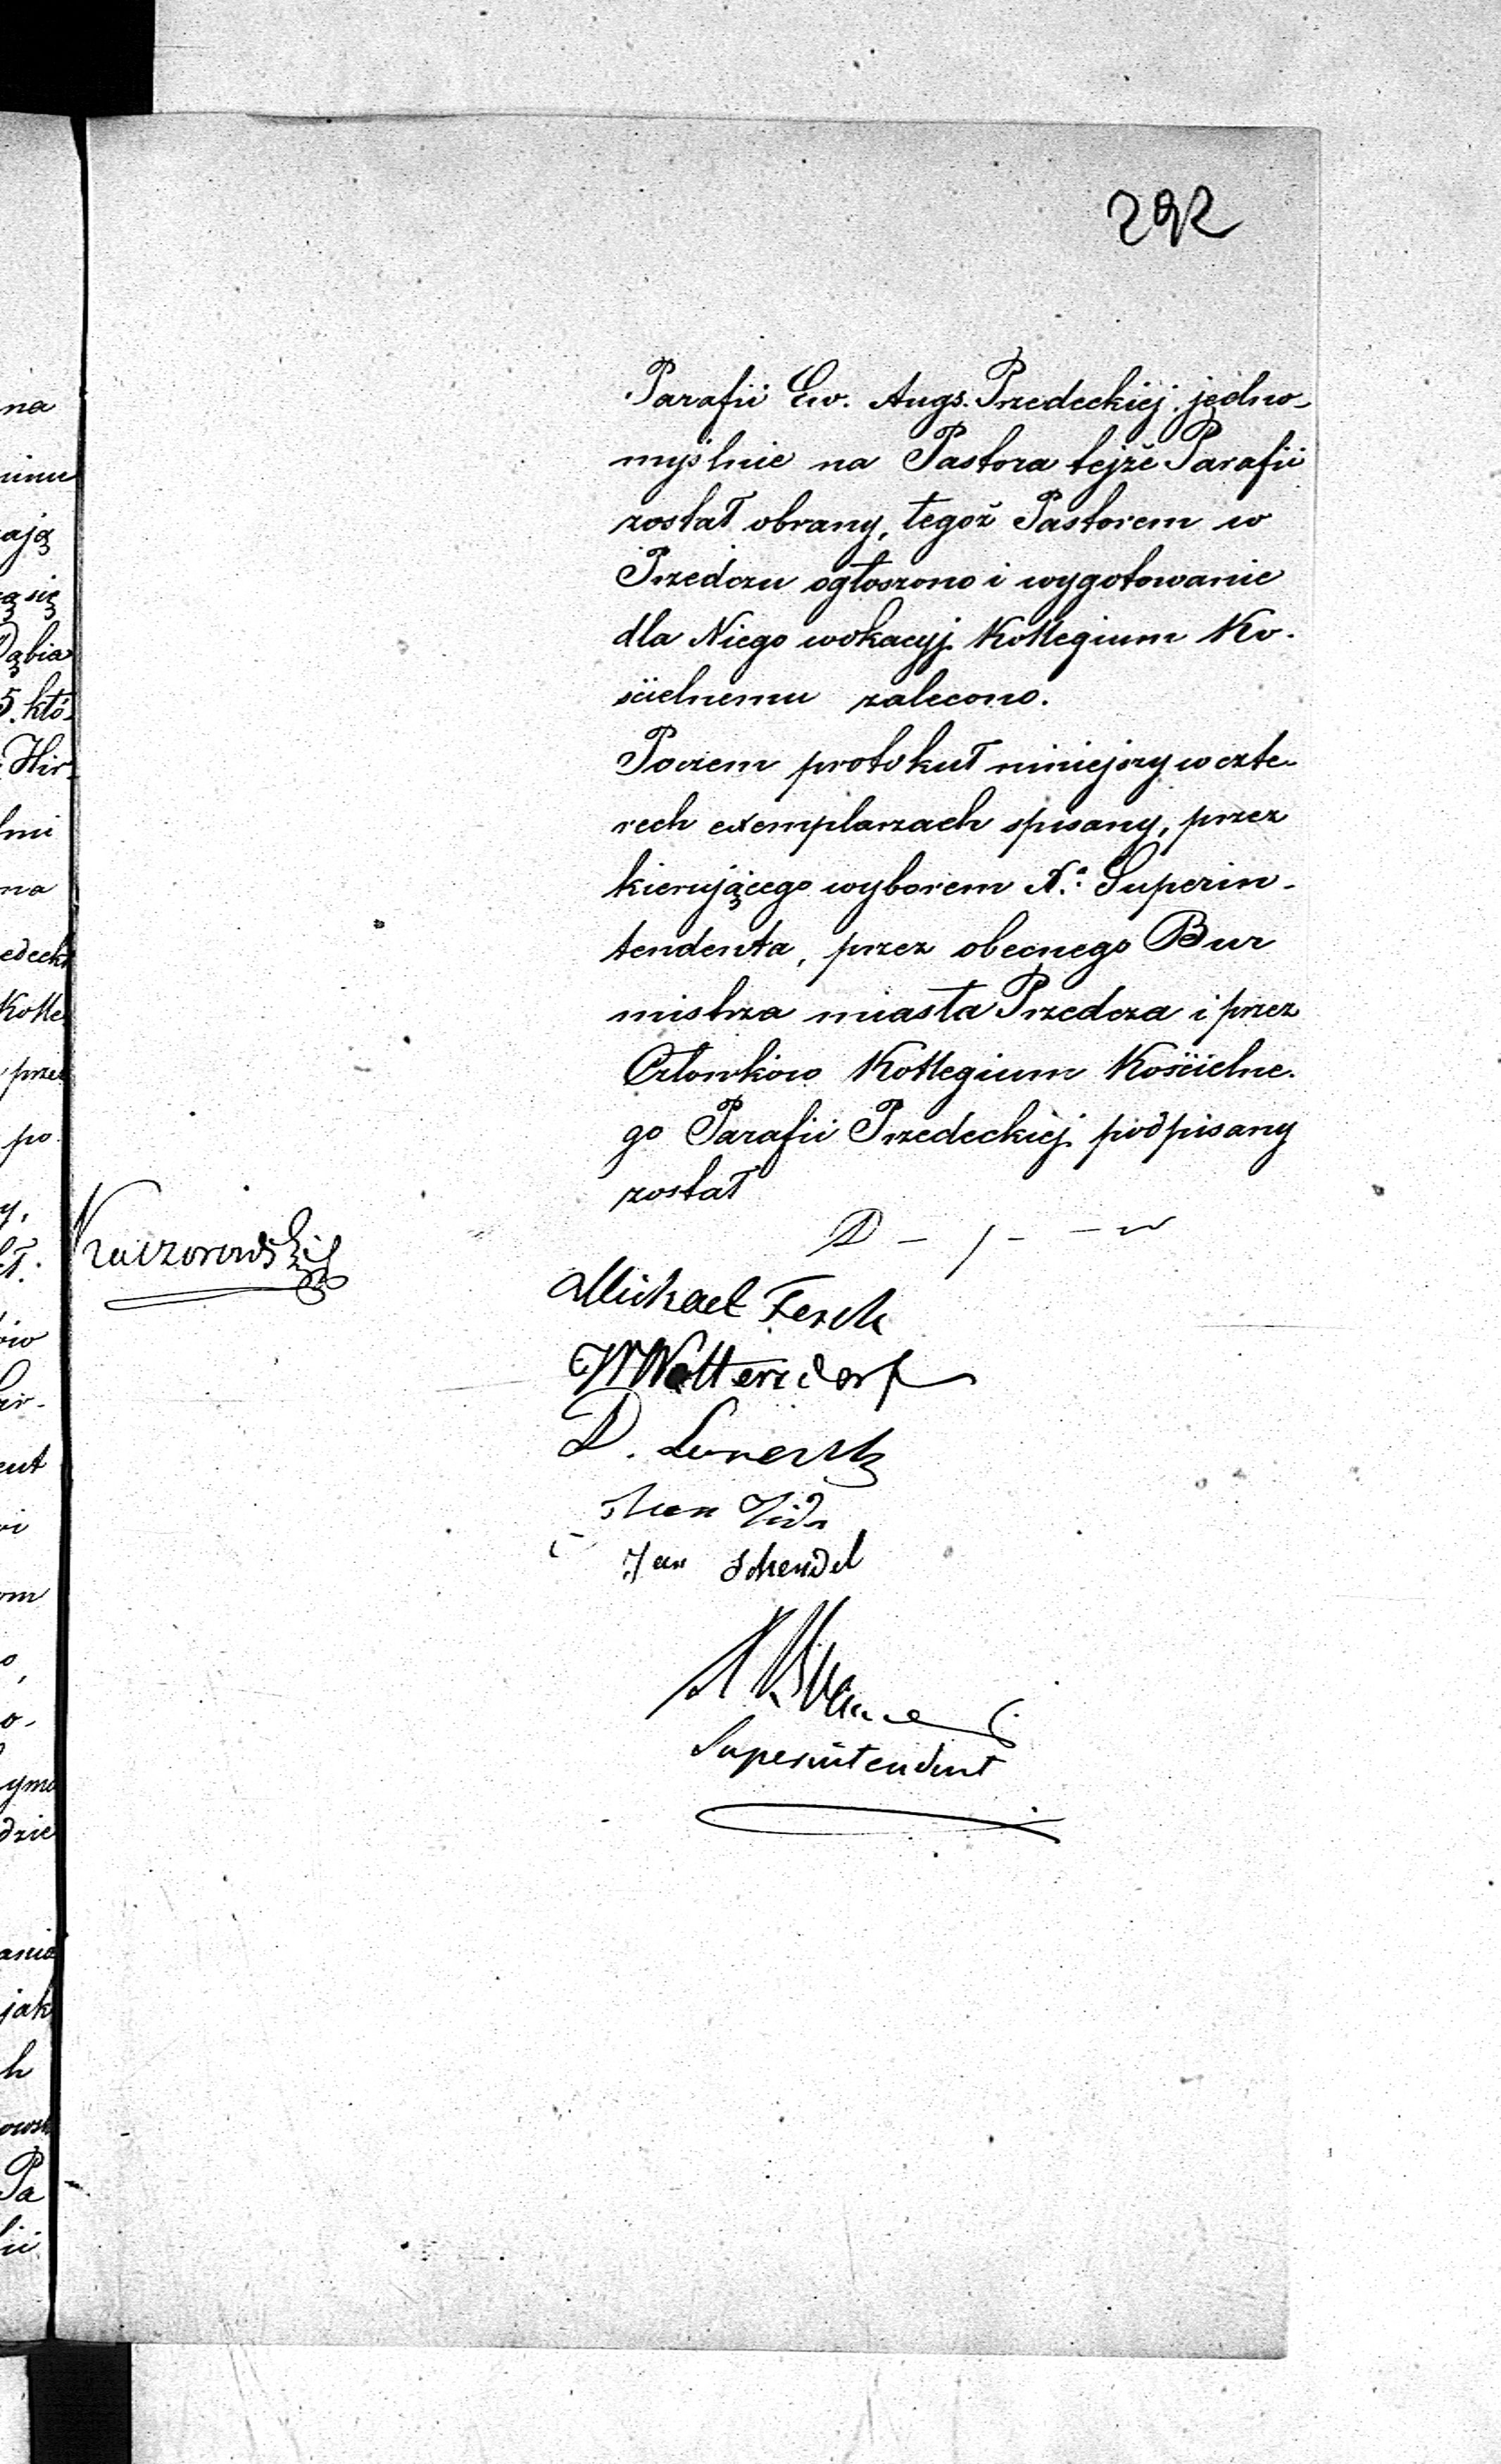 292
Parafii Ew. Augs. Przedeckiej jedno-
myślnie na Pastora tejże Parafii
został obrany, tegoż Pastorem w
Przedczu ogłoszono i wygotowanie
dla Niego wokacyj Kollegium Ko-
ścielnemu zalecono.
Poczem protokuł niniejszy w czte-
rech exemplarzach spisany, przez
kierującego wyborem X. Superin-
tendenta, przez obecnego Bur
mistrza miasta Przedcza i przez
Członków Kollegium Kościelne-
go Parafii Przedeckiej podpisany
został
Kaczorowski
Michael Ferch
W Woltersdorf
D.
Jan Schendel
Superintendent
na
ają
się
Dąbia
5. któ-
Hir-
na
Kolle
przez
po
y,
ów
jak
h
Pa